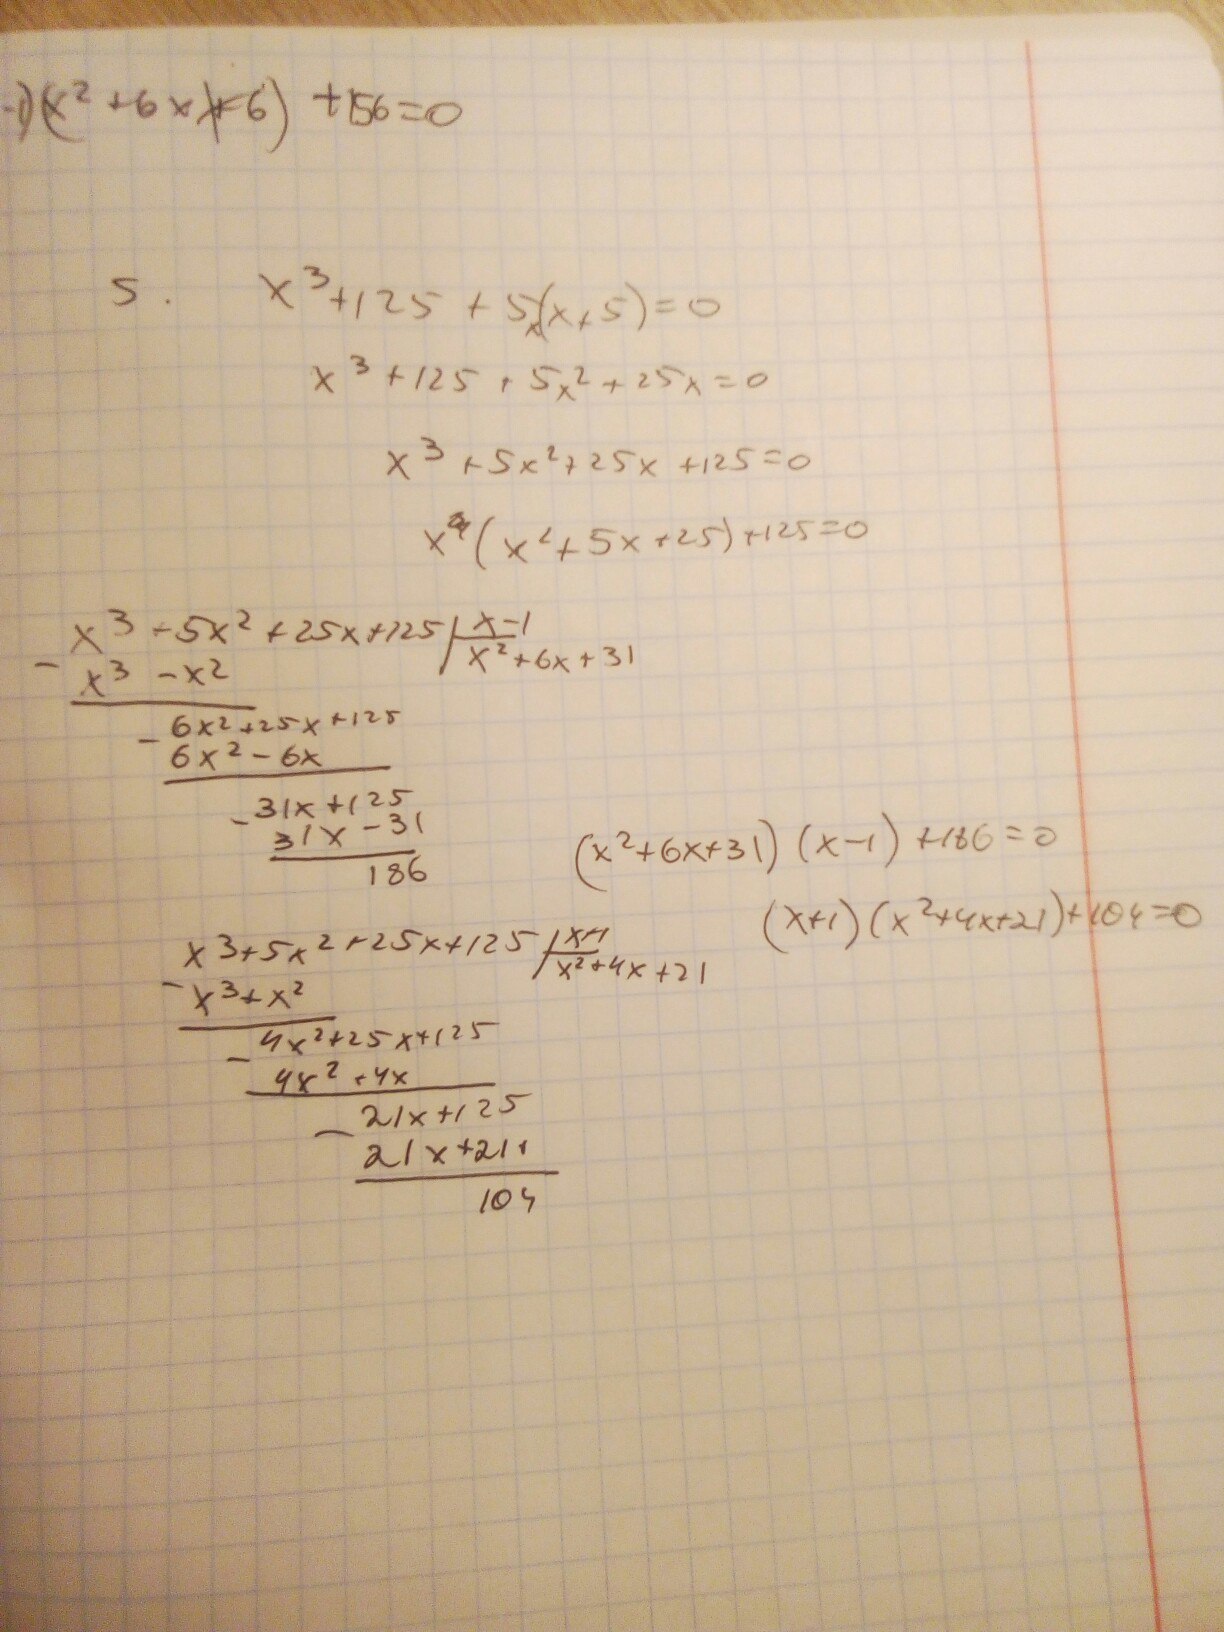 -1)(x² + 6x + 6) + 156 = 0
5. x³ + 125 + 5x(x + 5) = 0
x³ + 125 + 5x² + 25x = 0
x³ + 5x² + 25x + 125 = 0
x(x² + 5x + 25) + 125 = 0
x³ + 5x² + 25x + 125 | x - 1
- x³ - x² | x² + 6x + 31
- 6x² + 25x + 125
6x² - 6x
- 31x + 125
31x - 31
186
(x² + 6x + 31)(x - 1) + 186 = 0
(x + 1)(x² + 4x + 21) + 104 = 0
x³ + 5x² + 25x + 125 | x + 1
- x³ + x² | x² + 4x + 21
- 4x² + 25x + 125
4x² + 4x
- 21x + 125
21x + 21
104